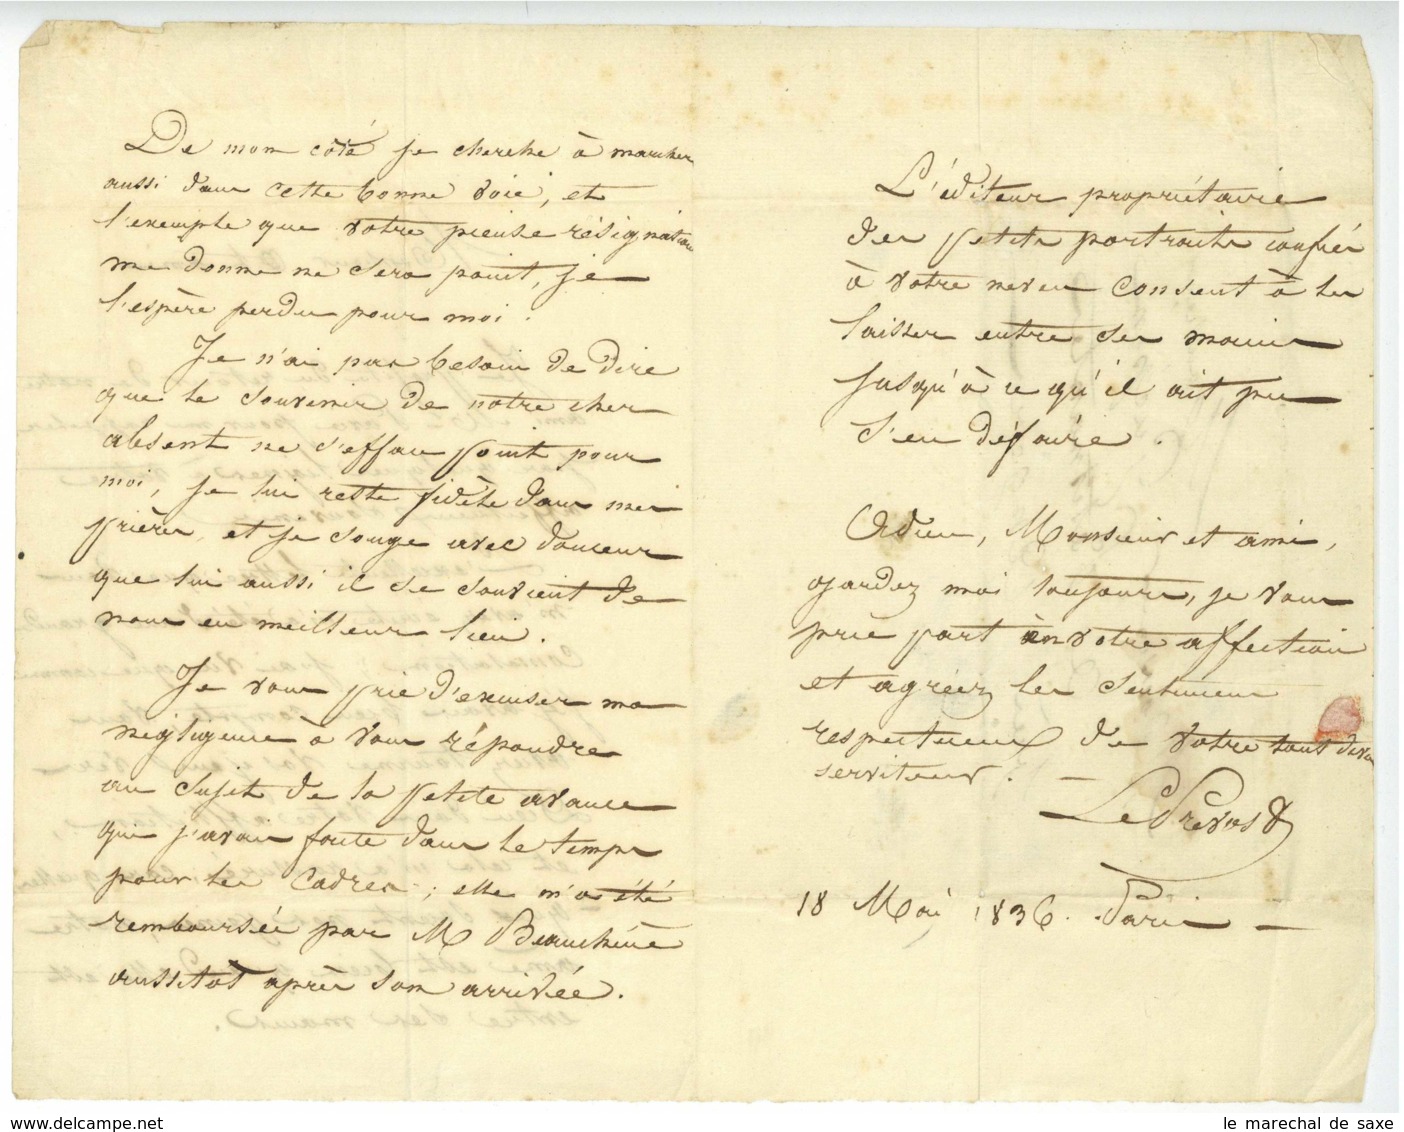 De mon côté je cherche à marcher
aussi dans cette bonne voie, et
l'exemple que votre pieuse résignation
me donne ne sera point, je
l'espère perdu pour moi.
Je n'ai pas besoin de dire
que le souvenir de notre cher
absent ne s'efface point pour
moi, je lui reste fidèle dans mes
prières, et je songe avec douceur
que lui aussi il se souvient de
nous en meilleur lieu.
Je vous prie d'excuser ma
négligence à vous répondre
au sujet de la petite avance
que j'avais faite dans le temps
pour les Cadres; elle m'a été
remboursée par M Beauchêne
aussitôt après son arrivée.
L'éditeur propriétaire
des petits portraits confiés
à votre neveu consent à les
laisser entre ses mains
jusqu'à ce qu'il ait pu
s'en défaire.
Adieu, Monsieur et ami,
gardez moi toujours, je vous
prie part en votre affection
et agréez les sentimens
respectueux de votre tout dévoué
serviteur. —
Le Prevost
18 Mai 1836. Paris —
www.delcampe.net
le marechal de saxe